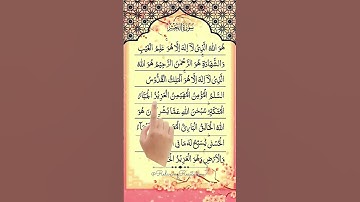 سورة الحشر
هُوَ اللهُ الَّذِىْ لَآ اِلٰهَ اِلَّا هُوَ عٰلِمُ الْغَيْبِ
وَالشَّهَادَةِ هُوَ الرَّحْمٰنُ الرَّحِيْمُ هُوَ اللهُ
الَّذِىْ لَآ اِلٰهَ اِلَّا هُوَ اَلْمَلِكُ الْقُدُّوْسُ
السَّلٰمُ الْمُؤْمِنُ الْمُهَيْمِنُ الْعَزِيْزُ الْجَبَّارُ
الْمُتَكَبِّرُ سُبْحٰنَ اللهِ عَمَّا هُوَ
اللهُ الْخَالِقُ الْبَارِئُ
الْحُسْنٰى يُسَبِّحُ لَهٗ مَا فِى
وَالْاَرْضِ وَهُوَ الْعَزِيْزُ